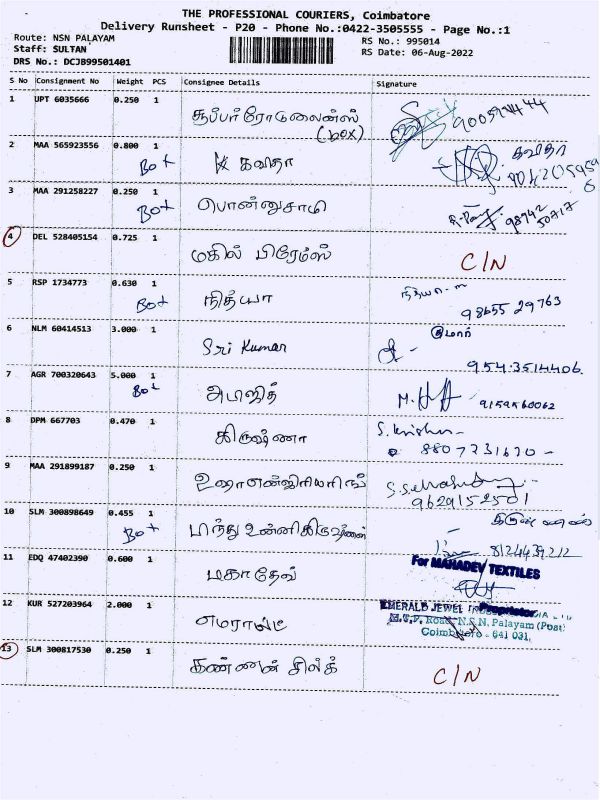 THE PROFESSIONAL COURIERS, Coimbatore
Delivery Runsheet - P20 - Phone No.:0422-3505555 - Page No.:1
Route: NSN PALAYAM
RS No.: 995014
Staff: SULTAN
RS Date: 06-Aug-2022
DRS No.: DCJB99501401
S No Consignment No Weight PCS Consignee Details Signature
1 UPT 6035666 0.250 1
சூப்பர்ரோடுலைன்ஸ்
(box)
2 MAA 565923556 0.800 1
Box கவிதா கவிதா
3 MAA 291258227 0.250 1
Box பொன்னுசாமி 98942
50717
4 DEL 528405154 0.725 1
மகில் பிரேம்ஸ் C/N
5 RSP 1734773 0.630 1
Box நித்யா 98655 29763
6 NLM 60414513 3.000 1 குமார்
Sri Kumar 954 3514406
7 AGR 700320643 5.000 1
Box அபஜித் 9159560062
8 DPM 667703 0.470 1
கிருஷ்ணா S. Krishna
8807231670
9 MAA 291899187 0.250 1
9629152501
10 SLM 300898649 0.455 1
Box 8124439212
11 EDQ 47402390 0.600 1
மகாதேவ் For MAHADEV TEXTILES
Proprietor
12 KUR 527203964 2.000 1
எமரால்டு EMERALD JEWEL
M.T.P. Road, N.S.N. Palayam (Post)
Coimbatore - 641 031.
13 SLM 300817530 0.250 1
கண்ணன் சில்க் C/N